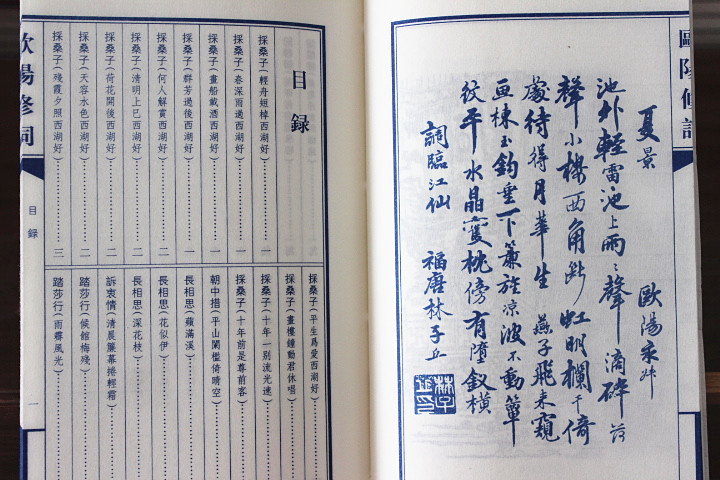 歐陽修詞
夏景 歐陽永叔
池外輕雷池上雨ミ聲滴碎荷
聲小樓西角斷虹明欄干倚
處待得月華生 燕子飛來窺
畫棟玉鈎垂下簾旌涼波不動簟
紋平水晶雙枕傍有墮釵橫
調臨江仙 福唐林子丘
目錄
採桑子(輕舟短棹西湖好)……一
採桑子(春深雨過西湖好)……一
採桑子(畫船載酒西湖好)……一
採桑子(群芳過後西湖好)……一
採桑子(何人解賞西湖好)……二
採桑子(清明上巳西湖好)……二
採桑子(荷花開後西湖好)……二
採桑子(天容水色西湖好)……二
採桑子(殘霞夕照西湖好)……三
採桑子(平生爲愛西湖好)……
採桑子(畫樓鐘動君休唱)……
採桑子(十年一別流光速)……
採桑子(十年前是尊前客)……
朝中措(平山闌檻倚晴空)……
長相思(蘋滿溪)……
長相思(花似伊)……
長相思(深花枝)……
訴衷情(清晨簾幕捲輕霜)……
踏莎行(候館梅殘)……
踏莎行(雨霽風光)……
歐陽修詞
目錄
一